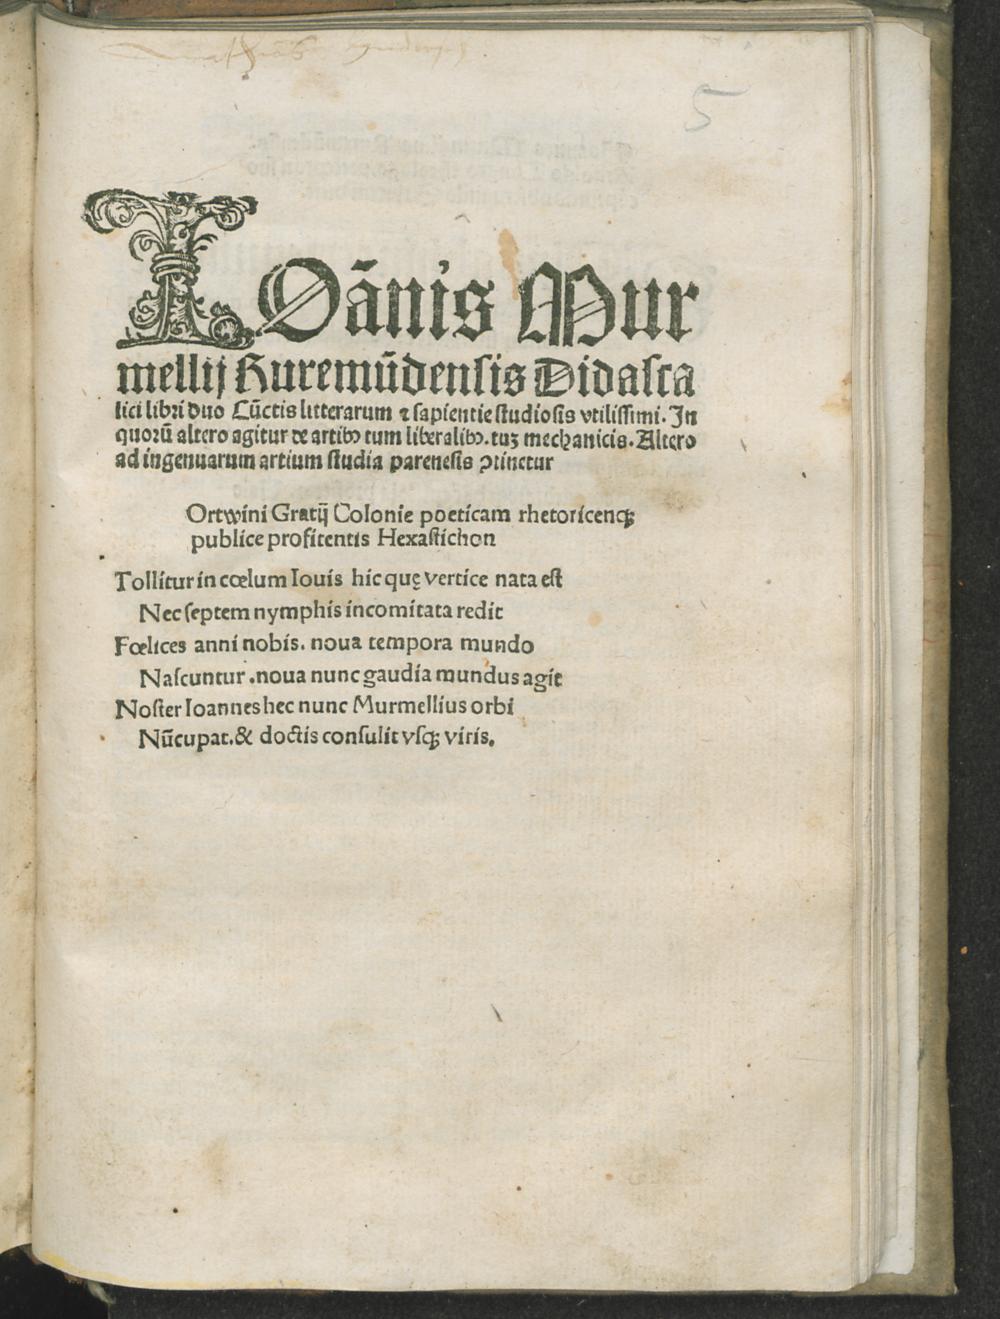 5
IOānis Mur
mellij Ruremūdensis Didasca
lici libri duo Cūctis litterarum ⁊ sapientie studiosis vtilissimi. In
quorū altero agitur de artibꝰ tum liberalibꝰ. tuꝫ mechanicis. Altero
ad ingenuarum artium studia parenesis ꝯtinetur
Ortwini Gratij Colonie poeticam rhetoricenqꝫ
publice profitentis Hexastichon
Tollitur in cœlum Iouis hic quę vertice nata est
Nec septem nymphis incomitata redit
Fœlices anni nobis. noua tempora mundo
Nascuntur. noua nunc gaudia mundus agit
Noster Ioannes hec nunc Murmellius orbi
Nūcupat. & doctis consulit vsqꝫ viris.